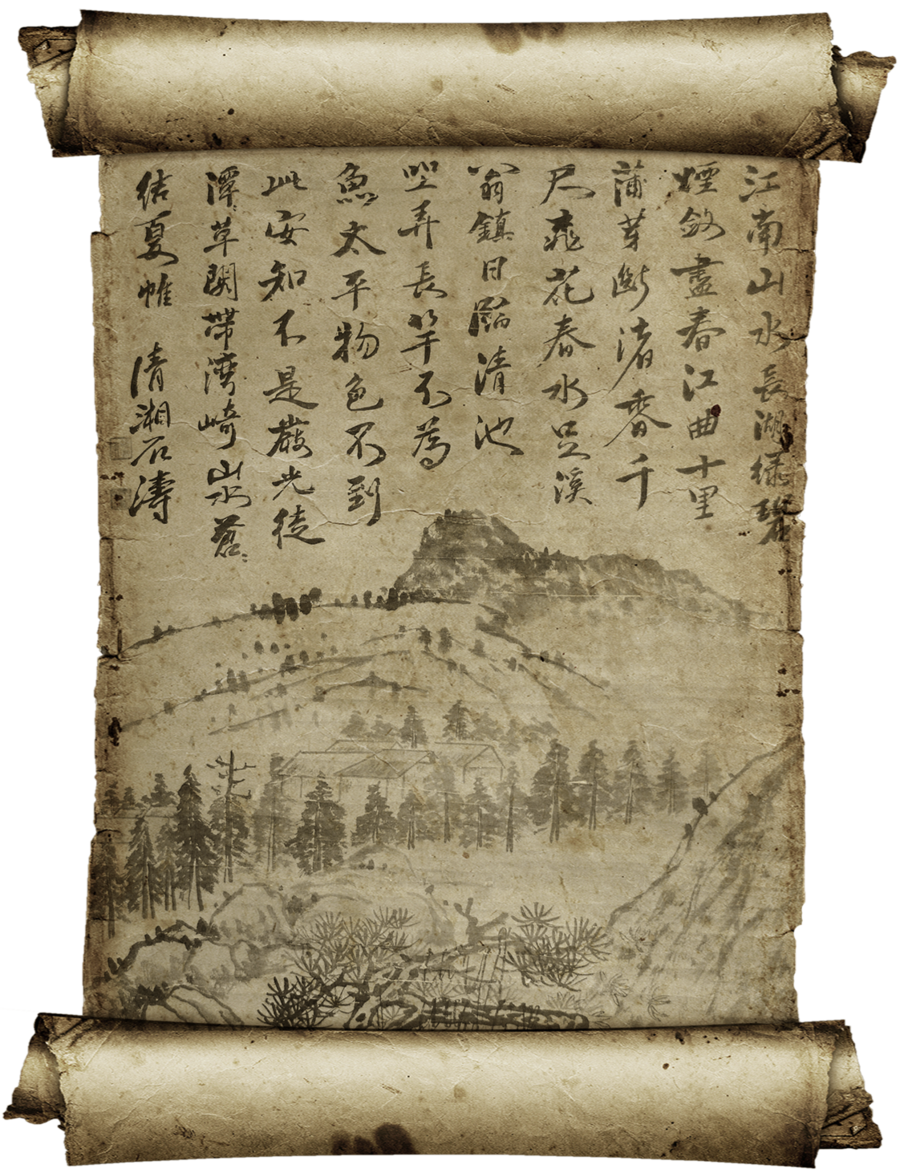 江南山水長湖綠碧
煙斂盡春江曲十里
蒲芽斷渚香千
尺桃花春水足溪
翁鎮日臨清池
坐弄長竿不為
魚太平物色不到
此安知不是嚴光徒
潭草閣帶灣崎山水舊
結夏帷 清湘石濤